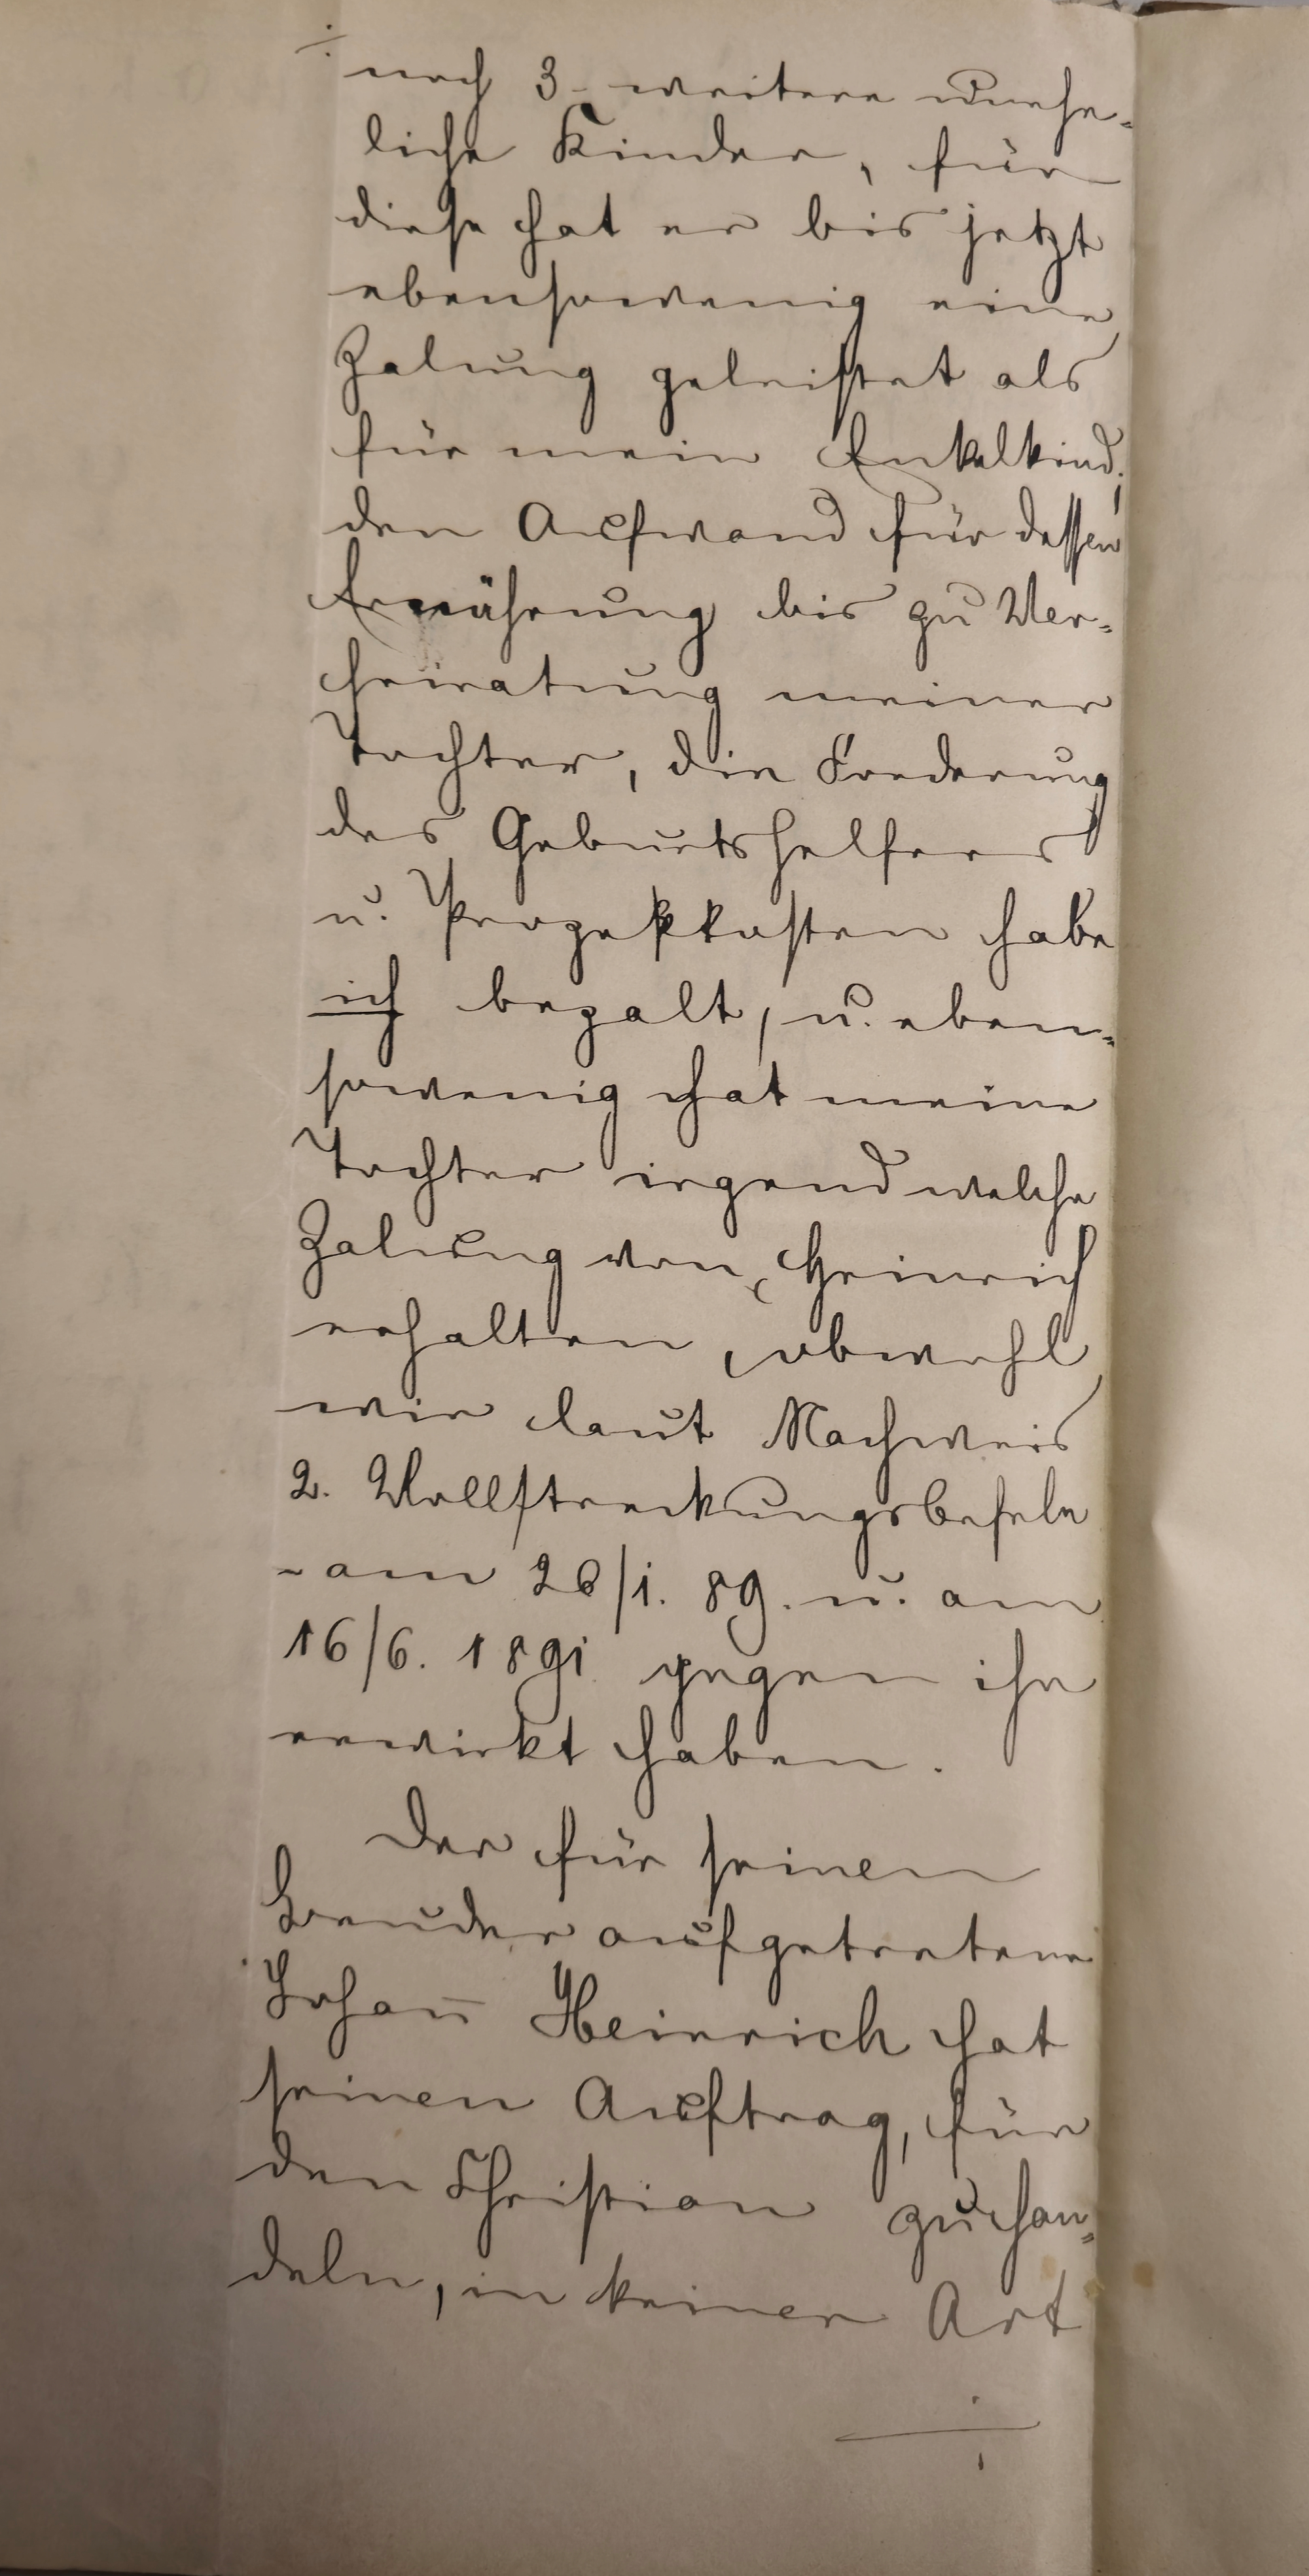 noch 3 weitere unehe-
liche Kinder, für
diese hat er bis jetzt
ebensowenig eine
Zalung geleistet als
für mein Enkelkind;
den Aufwand für dessen
Ernährung bis zu Ver-
heiratung meiner
Tochter, die Forderung
des Geburtshelfers
u. Prozeßkosten habe
ich bezalt, u. eben-
sowenig hat meine
Tochter irgend welche
Zalung von Heinrich
erhalten, obwohl
wir laut Nachweis
2. Vollstreckungsbefele
- am 26/1. 89. u. am
16/6. 1891 gegen ihn
erwirkt haben.
Der für seinen
Bruder aufgetretene
Johan̄ Heinrich hat
seinen Auftrag, für
den Christian zu han-
deln, in keiner Art